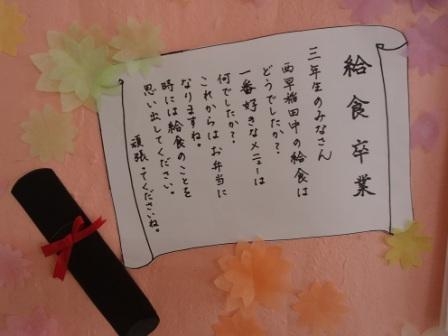 給食卒業
三年生のみなさん
西早稲田中の給食は
どうでしたか？
一番好きなメニューは
何でしたか？
これからはお弁当に
なりますね。
時には給食のことを
思い出してください。
頑張ってくださいね。